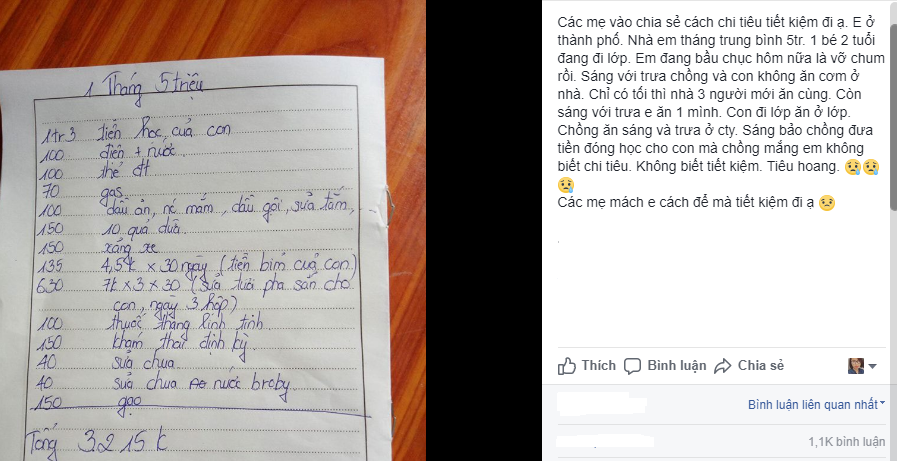 1 Tháng 5 triệu
1tr3 tiền học của con
100 điện + nước
100 thẻ đt
70 gas
100 dầu ăn, nc mắm, dầu gội, sữa tắm,
150 10 quả dừa
150 xăng xe
135 4,5k x 30 ngày (tiền bỉm của con)
630 7k x 3 x 30 (sữa tươi pha sẵn cho
con, ngày 3 hộp)
100 thuốc thang linh tinh
150 khám thai định kỳ
40 sữa chua
40 sữa chua nước broby
150 gạo
Tổng 3215k
Các mẹ vào chia sẻ cách chi tiêu tiết kiệm đi ạ. E ở
thành phố. Nhà em tháng trung bình 5tr. 1 bé 2 tuổi
đang đi lớp. Em đang bầu chục hôm nữa là vỡ chum
rồi. Sáng với trưa chồng và con không ăn cơm ở
nhà. Chỉ có tối thì nhà 3 người mới ăn cùng. Còn
sáng với trưa e ăn 1 mình. Con đi lớp ăn ở lớp.
Chồng ăn sáng và trưa ở cty. Sáng bảo chồng đưa
tiền đóng học cho con mà chồng mắng em không
biết chi tiêu. Không biết tiết kiệm. Tiêu hoang. 😢😢
😢
Các mẹ mách e cách để mà tiết kiệm đi ạ 😟
Thích Bình luận Chia sẻ
Bình luận liên quan nhất
1,1K bình luận